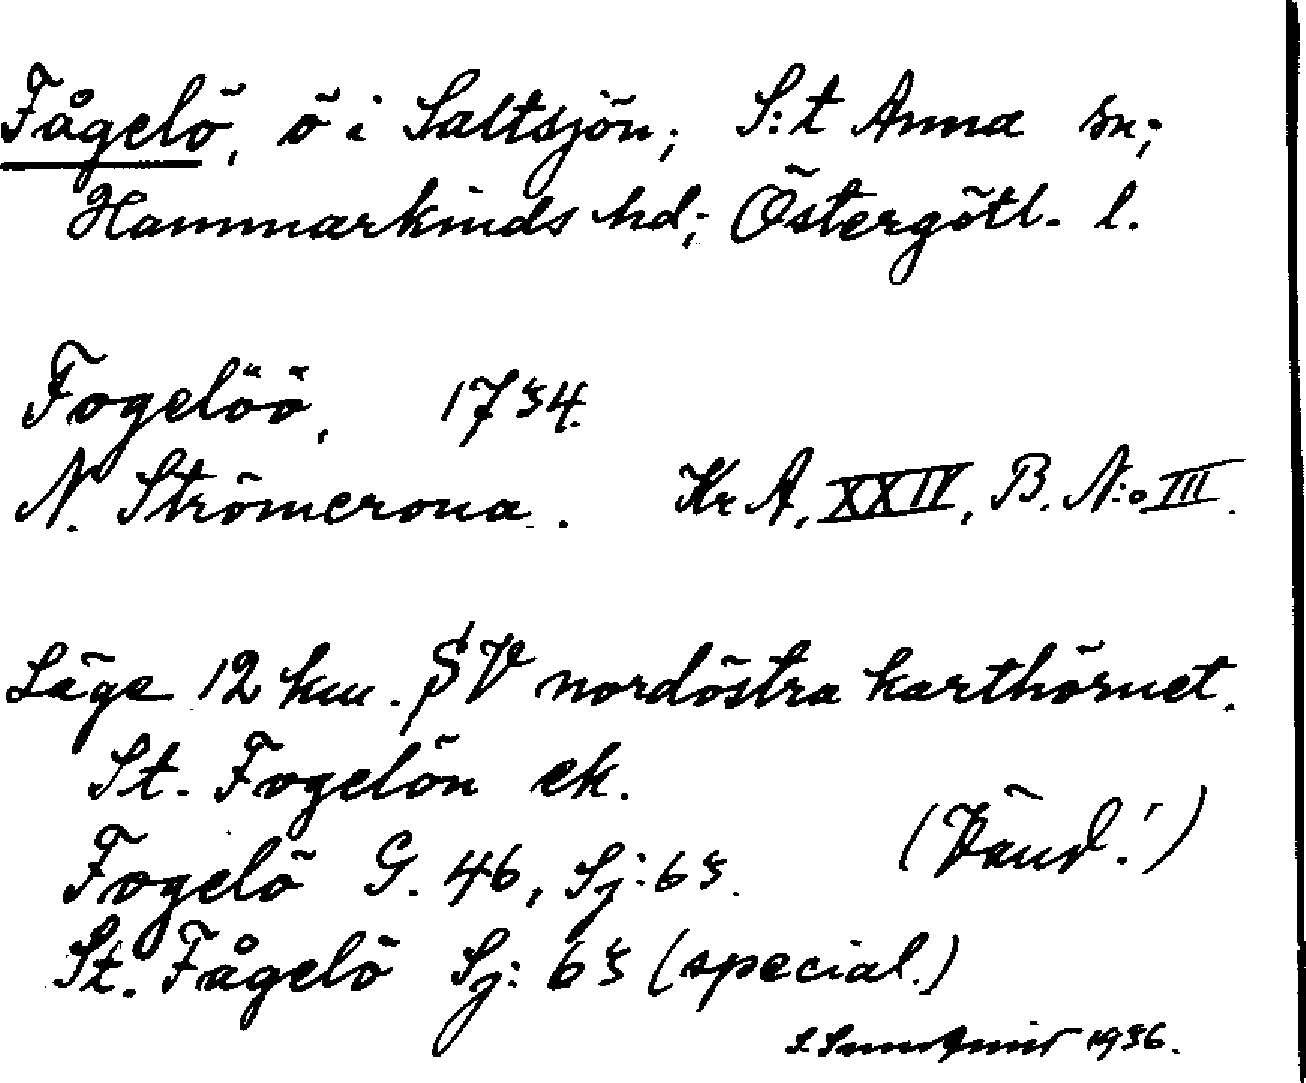 Fågelö, ö i Saltsjön; S:t Anna sn;
Hammarkinds hd; Östergötl. l.
Fogelöö, 1734.
N. Strömcrona. Kr A, XXIV, B. N:o III.
Läge 12 km. SV nordöstra karthörnet.
St. Fogelön ek.
(Vänd!)
Fogelö G. 46, Sj: 63.
St. Fågelö Sj: 63 (special.)
1936.